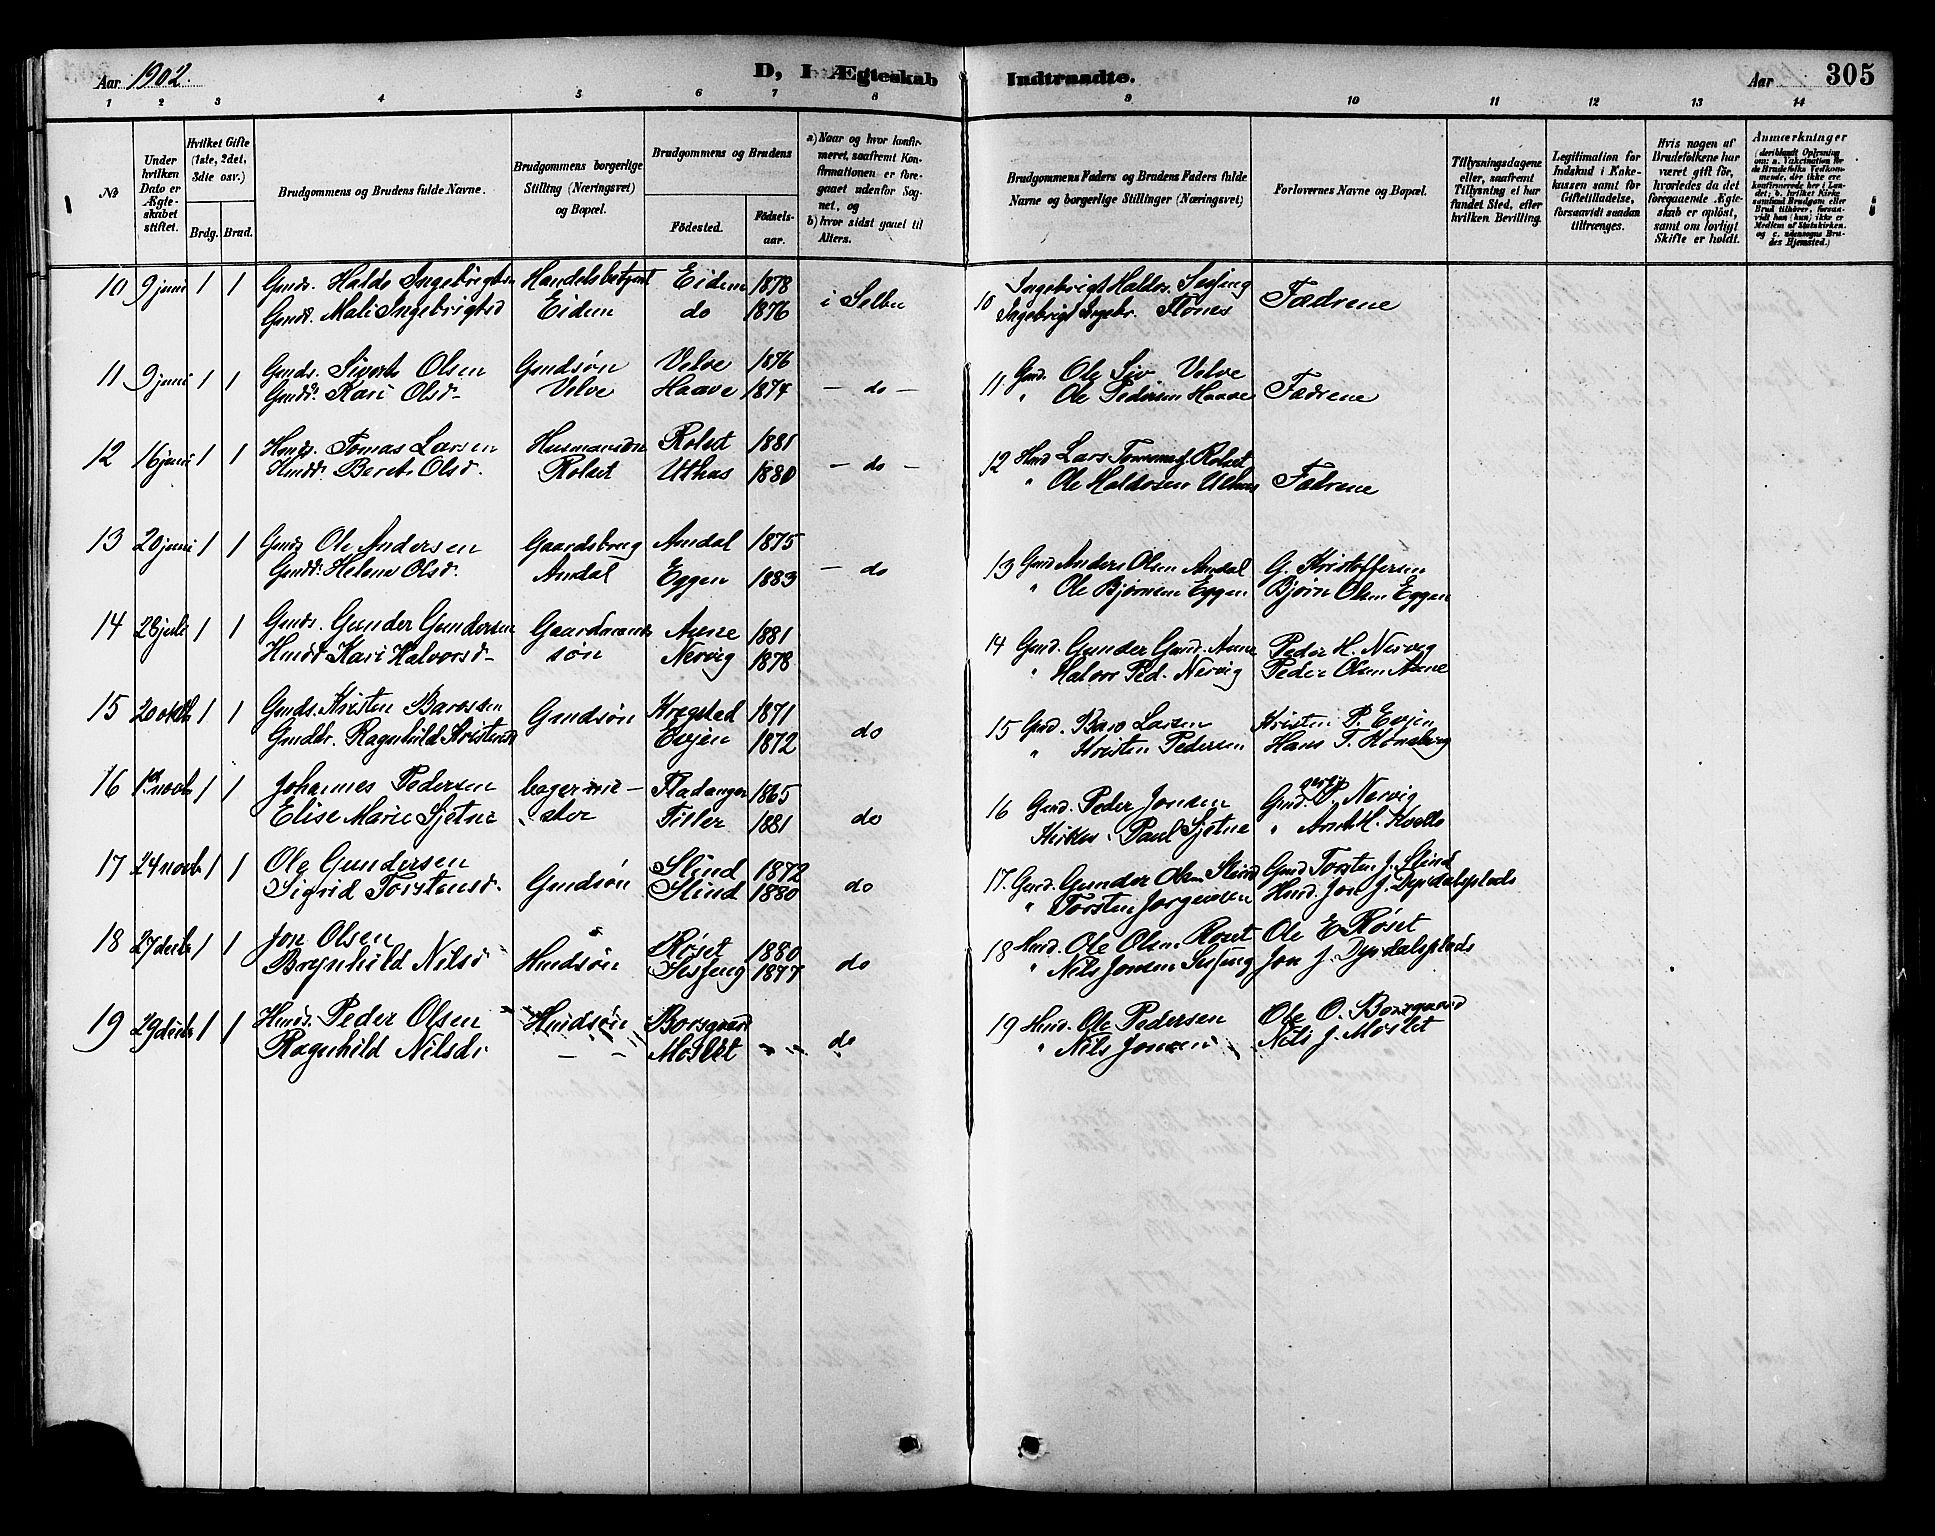 Aar 1902. D, I Ægteskab Indtraadte. Aar 305
1 2 3 4 5 6 7 8 9 10 11 12 13 14
№
Under hvilken Dato er Ægteskabet stiftet.
Hvilket Gifte (1ste, 2det, 3die osv.)
Brdg. Brud.
Brudgommens og Brudens fulde Navne.
Brudgommens borgerlige Stilling (Næringsvei) og Bopæl.
Brudgommens og Brudens
Fødested. Fødselsaar.
a) Naar og hvor konfirmeret, saafremt Konfirmationen er foregaaet udenfor Sognet, og
b) hvor sidst gaaet til Alters.
Brudgommens Faders og Brudens Faders fulde Navne og borgerlige Stillinger (Næringsvei)
Forlovernes Navne og Bopæl.
Tillysningsdagene eller, saafremt Tillysning ei har fundet Sted, efter hvilken Bevilling.
Legitimation for Indskud i Enkekassen samt for Giftetilladelse, forsaavidt saadan tiltrænges.
Hvis nogen af Brudefolkene har været gift før, hvorledes da det foregaaende Ægteskab er opløst, samt om lovligt Skifte er holdt.
Anmærkninger
(deriblandt Oplysning om: a. Vakcination for de Brudefolks Vedkommende, der ikke ere konfirmerede her i Landet; b. hvilket Kirkesamfund Brudgom eller Brud tilhører, forsaavidt han (hun) ikke er Medlem af Statskirken, og c. udensogns Brudes Hjemsted.)
10 9 juni 1 1 Gmds. Haldo Ingebrigtsen Handelsbetjent Eidem 1878 i Selbu 10 Ingebrigt Haldos. Sesseng Fædrene
Gmdd. Mali Ingebrigtsd Eidem do 1876 Ingebrigt Ingebr. Flønes
11 9 juni 1 1 Gmds. Sivert Olsen Gmdsøn Velve 1876 - do - 11 Gmd. Ole Siv Velve Fædrene
Gmdd. Kari Olsd. Velve Haave 1874 " Ole Pedersen Haave
12 16 juni 1 1 Hmds. Tomas Larsen Husmandsøn Rolset 1881 - do - 12 Hmd Lars Tomas. Rolset Fædrene
Hmdd. Beret Olsd. Rolset Uthus 1880 " Ole Haldosen Uthus
13 20 juni 1 1 Gmds Ole Andersen Gaardsbrug Amdal 1875 - do 13 Gmd Anders Olsen Amdal G. Kristoffersen
Gmdd. Helene Olsd. Amdal Eggen 1883 " Ole Bjørnsen Eggen Bjørn Olsen Eggen
14 28 juli 1 1 Gmds. Gunder Gundersen Gaardmands Aune 1881 14 Gmd. Gunder Gund. Aune Peder H. Nervig
Hmdd Kari Halvorsd. søn Nervig 1878 " Halvor Ped. Nervig Peder Olsen Aune
15 20 oktb 1 1 Gmds. Kristen Baroosen Gmdsøn Krogstad 1871 do 15 Gmd. Baro Larsen Kristen P. Evjen
Gmddtr. Ragnhild Kristensd Evjen 1872 " Kristen Pedersen Hans T.
16 1st novb 1 1 Johannes Pedersen bagerme- Fladanger 1865 do 16 Gmd. Peder Jonsen Gmd. P. Nervig
Elise Marie Sjetne ster Tiller 1881 Paul Sjetne " H. Kvello
17 24 novb 1 1 Ole Gundersen Gmdsøn Slind 1872 do 17. Gmd. Gunder Olsen Slind Gmd Torsten J. Slind
Sigrid Torstensd. Slind 1880 " Torsten Jorgensen Hmd. Jon J. Dyrdalsplads
18 27 decb 1 1 Jon Olsen Hmdsøn Røset 1880 do 18 Hmd. Ole Olsen Røset Ole E Røset
Brynhild Nilsd Sesseng 1877 " Nils Jonsen Sesseng Jon J. Dyrdalsplads
19 29 decb 1 1 Hmds. Peder Olsen Hmdsøn Borsgaard do 19 Hmd. Ole Pedersen Ole O. Borsgaard
Ragnhild Nilsdr - - Moslet " Nils Jonsen Nils J. Moslet